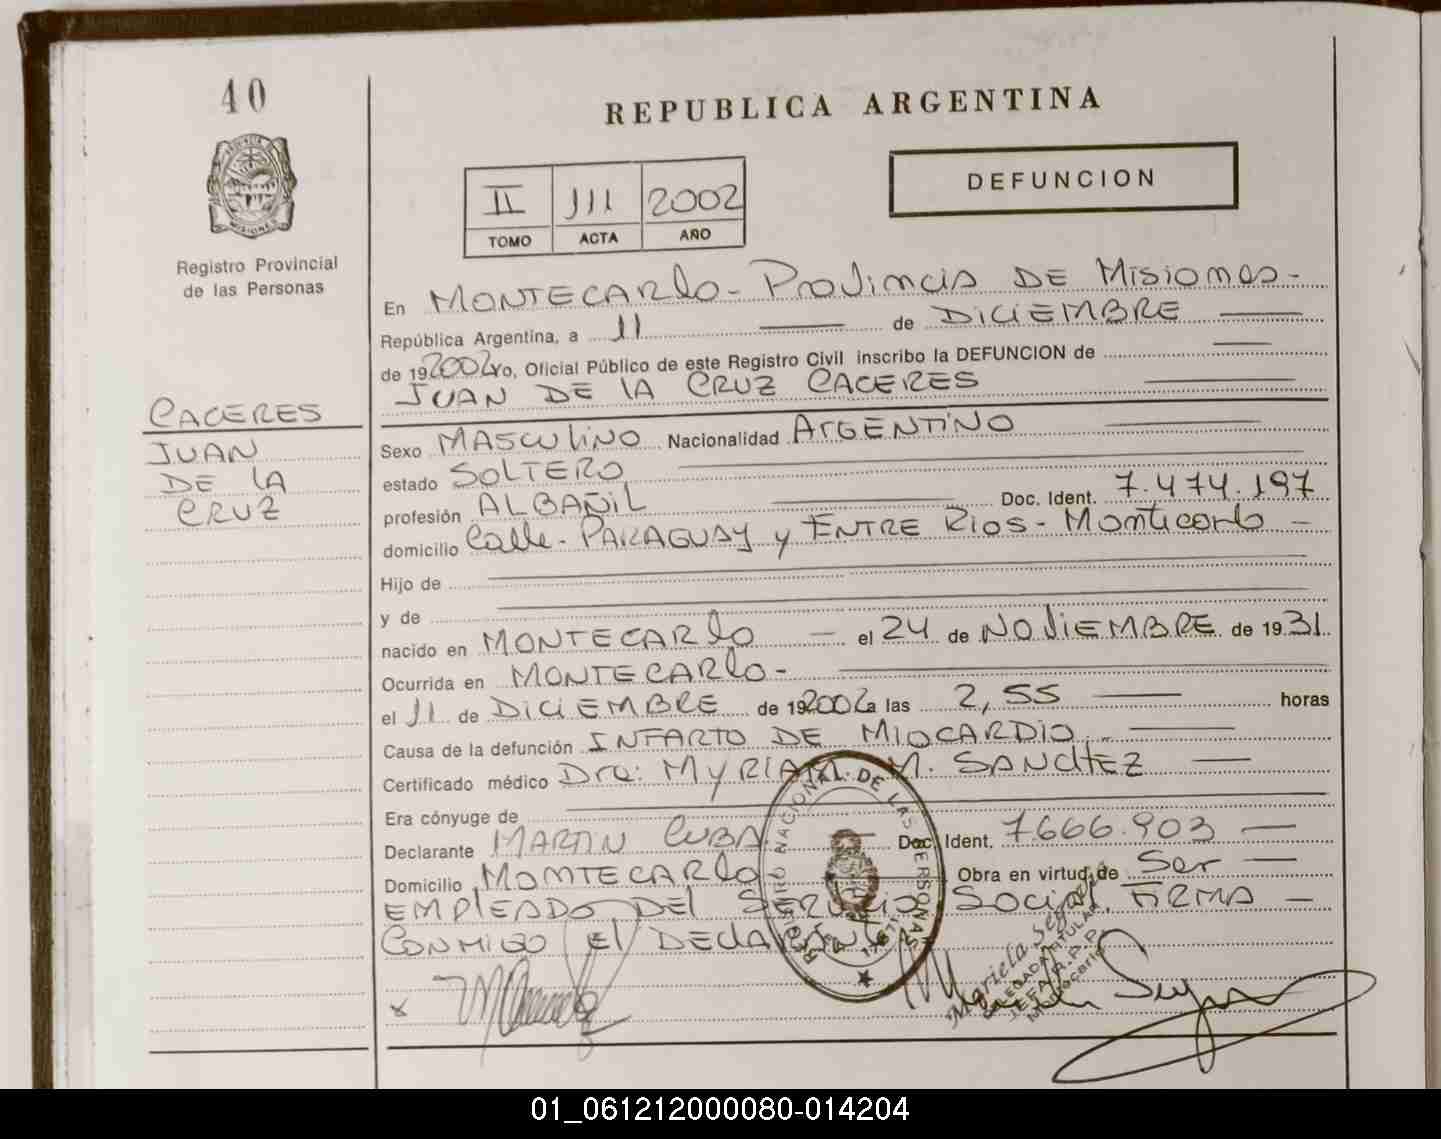 40
REPUBLICA ARGENTINA
II 111 2002
TOMO ACTA AÑO
DEFUNCION
Registro Provincial
de las Personas
En MONTECARLO - PROVINCIA DE MISIONES -
República Argentina, a 11 de DICIEMBRE
de 19 2002 yo, Oficial Público de este Registro Civil inscribo la DEFUNCION de
JUAN DE LA CRUZ CACERES
CACERES
JUAN
DE LA
CRUZ
Sexo MASCULINO Nacionalidad ARGENTINO
estado SOLTERO
profesión ALBAÑIL Doc. Ident. 7.474.197
domicilio Calle - PARAGUAY y ENTRE RIOS - Montecarlo -
Hijo de
y de
nacido en MONTECARLO - el 24 de NOVIEMBRE de 1931.
Ocurrida en MONTECARLO -
el 11 de DICIEMBRE de 19 2002 a las 2,55 horas
Causa de la defunción INFARTO DE MIOCARDIO
Certificado médico Dra: MYRIAM M. SANCHEZ
Era cónyuge de
Declarante MARTIN CUBA Doc. Ident. 7666.903
Domicilio MONTECARLO Obra en virtud de Ser
EMPLEADO DEL SERVICIO SOCIAL, FIRMA -
CONMIGO El DECLARANTE
REGISTRO NACIONAL DE LAS PERSONAS
Mariela Segovia
DELEGADA TITULAR
Montecarlo
01_061212000080-014204